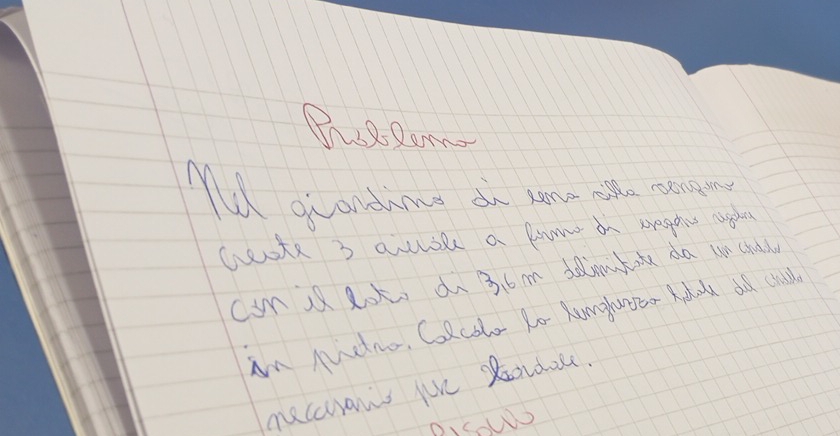 Problema
Nel giardino di una villa vengono
create 3 aiuole a forma di esagono regolare
con il lato di 3,6 m delimitate da un cordolo
in pietra. Calcola la lunghezza totale del cordolo
necessario per bordarle.
RISOLVO